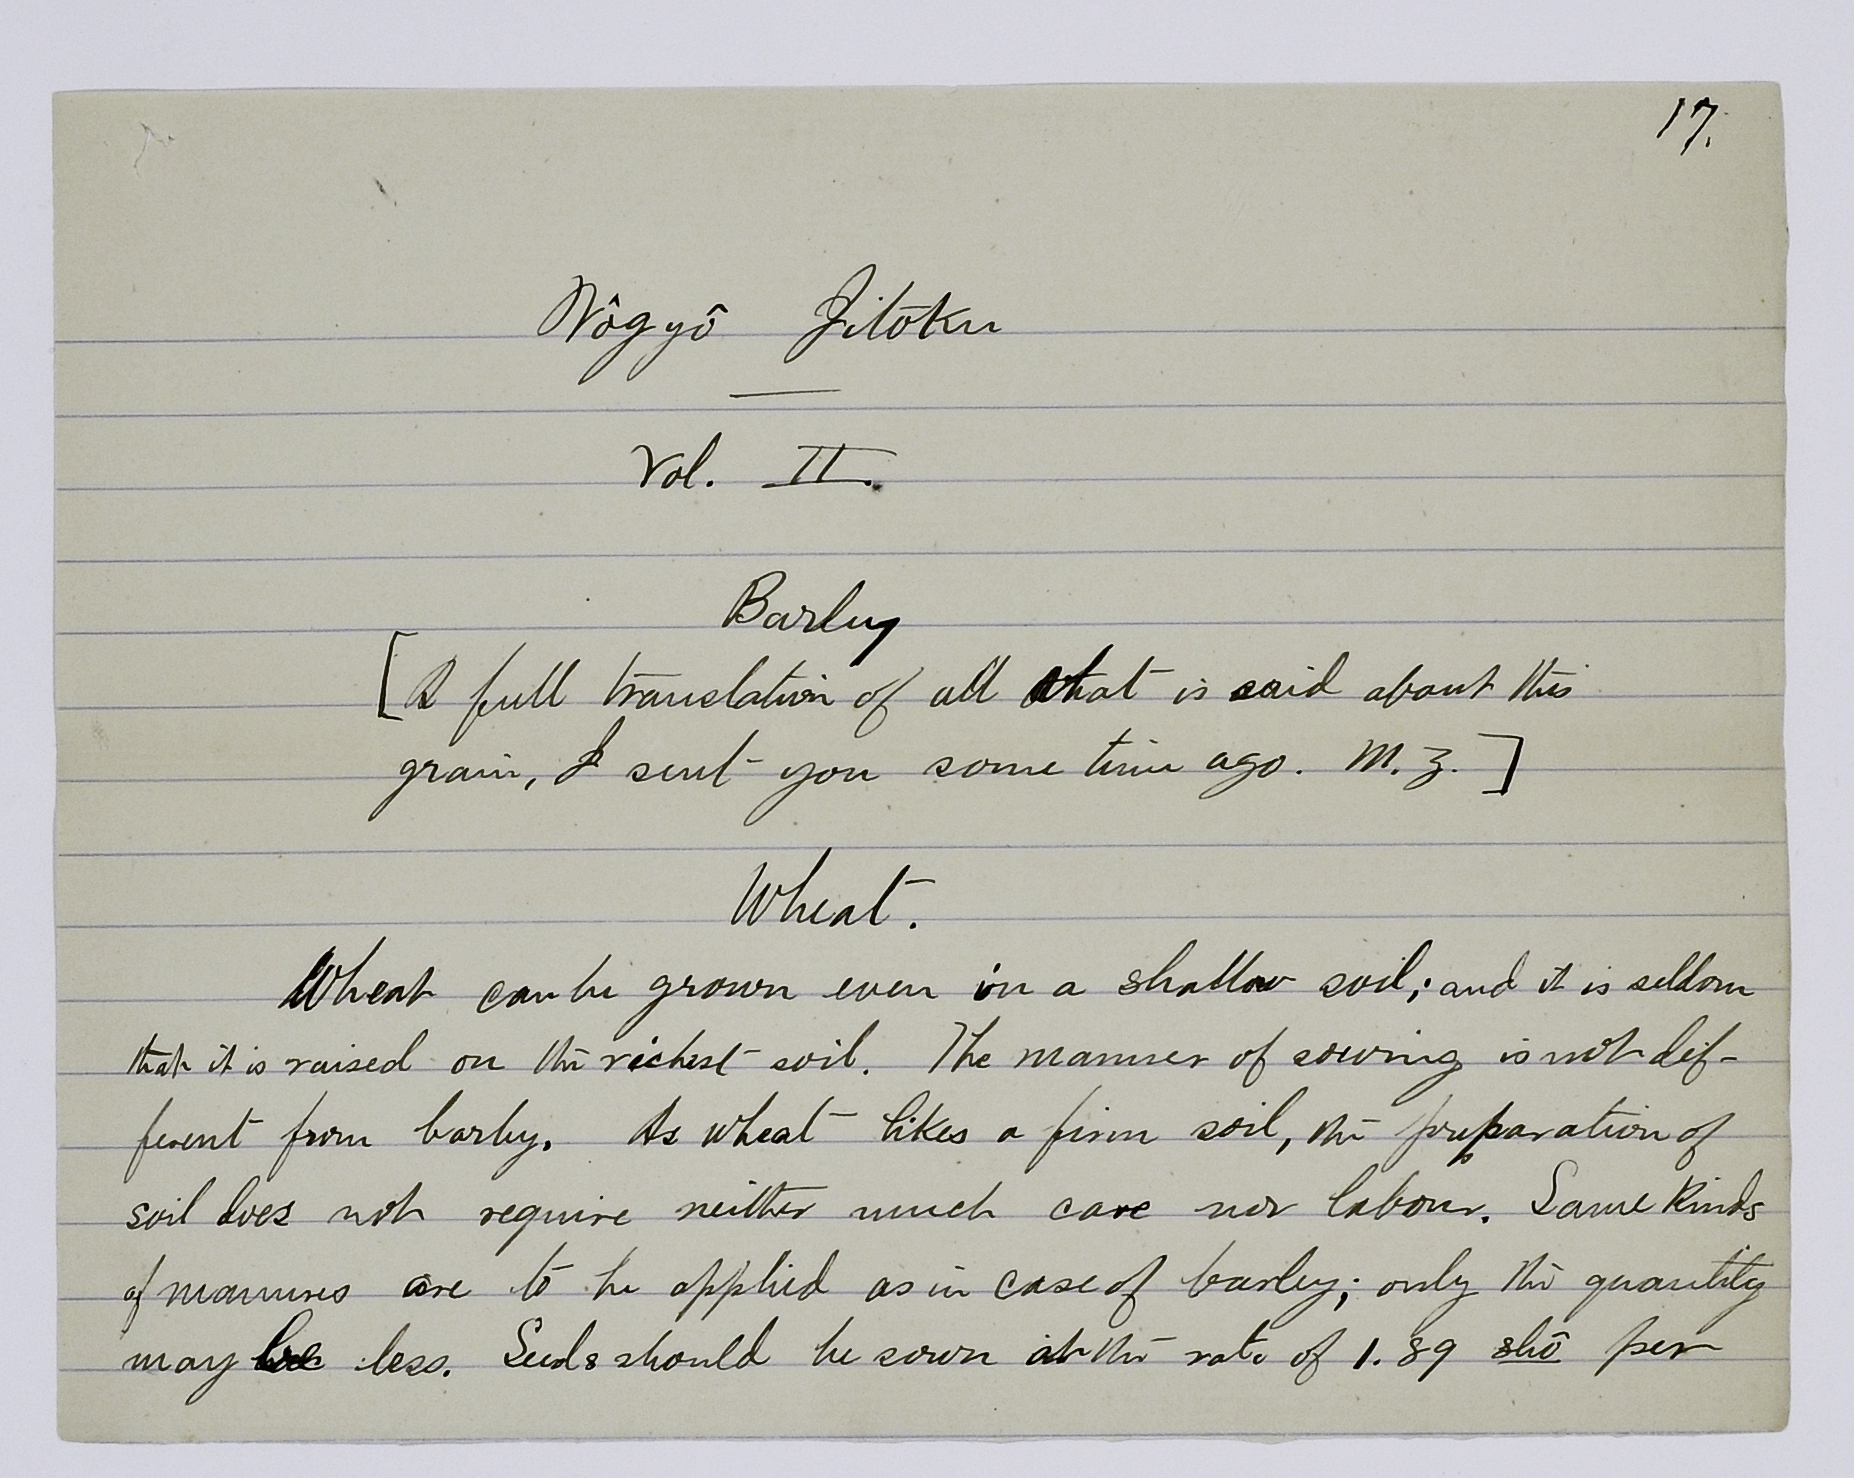 17.
Nôgyô Jitōku
Vol. II.
Barley
[A full translation of all that is said about this
grain, I sent you some time ago. M. Z.]
Wheat.
Wheat can be grown even in a shallow soil; and it is seldom
that it is raised on the richest soil. The manner of sowing is not dif-
ferent from barley. As wheat likes a firm soil, the preparation of
soil does not require neither much care nor labour. Same kinds
of manures are to be applied as in case of barley; only the quantity
may be less. Seeds should be sown at the rate of 1.89 shô per